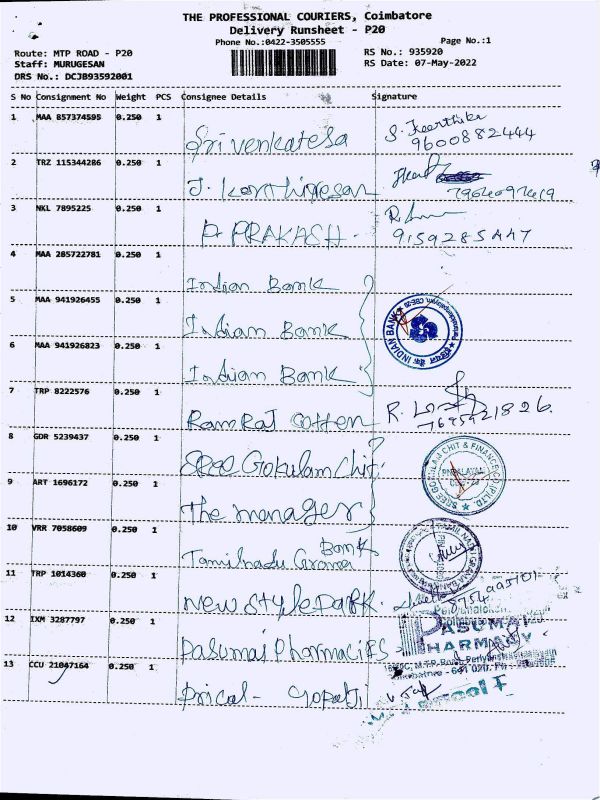 THE PROFESSIONAL COURIERS, Coimbatore
Delivery Runsheet - P20
Phone No.:0422-3505555
Page No.:1
Route: MTP ROAD - P20
RS No.: 935920
Staff: MURUGESAN
RS Date: 07-May-2022
DRS No.: DCJB93592001
S No Consignment No Weight PCS Consignee Details Signature
1 MAA 857374595 0.250 1
Sri venkatesa S. Keerthika
9600882444
2 TRZ 115344286 0.250 1
J. Karthigesan
3 NKL 7895225 0.250 1
P. PRAKASH.
9159285447
4 MAA 285722781 0.250 1
Indian Bank
5 MAA 941926455 0.250 1
Indian Bank
INDIAN BANK
6 MAA 941926823 0.250 1
Indian Bank
7 TRP 8222576 0.250 1
RamRaj Cotten R.
8 GDR 5239437 0.250 1
Sree Gokulam Chit.
SREE GOKULAM CHIT & FINANCE CO. (P) LTD.
9 ART 1696172 0.250 1
The manager
10 VRR 7058609 0.250 1
Tamilnadu Grama Bank
11 TRP 1014360 0.250 1
New Style Park.
12 IXM 3287797 0.250 1
Pasumai Pharmacies
PASUMAI
PHARMACY
13 CCU 21047164 0.250 1
Pricol - Gopalji